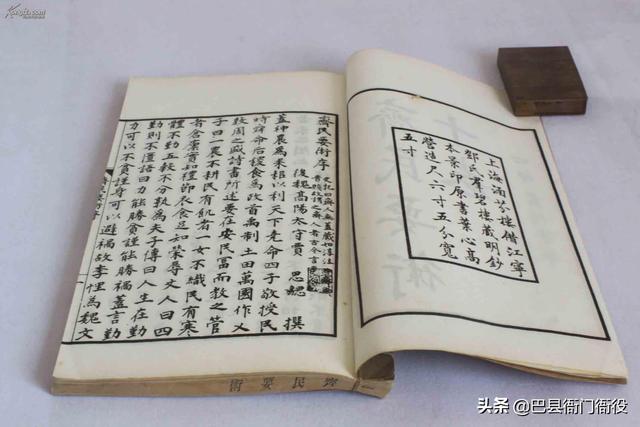 上海涵芬樓借江寧
鄧氏羣碧樓藏明鈔
本景印原書葉心高
營造尺六寸五分寬
五寸
齊民要術序
史記曰齊人無蓋藏如淳注
故謂之齊人者古今言
後魏高陽太守賈 思勰 撰
蓋神農為耒耜以利天下堯命四子敬授民
時舜命后稷食為政首禹制土田萬國作乂
殷周之盛詩書所述要在安民富而教之管
子曰一農不耕民有飢者一女不織民有寒
者倉廩實知禮節衣食足知榮辱丈人曰四
體不勤五穀不分孰為夫子傳曰人生在勤
勤則不匱語曰力能勝貧謹能勝禍蓋言勤
力可以不貧謹身可以避禍故李悝為魏文
齊民要術
头条 @巴县衙门衙役